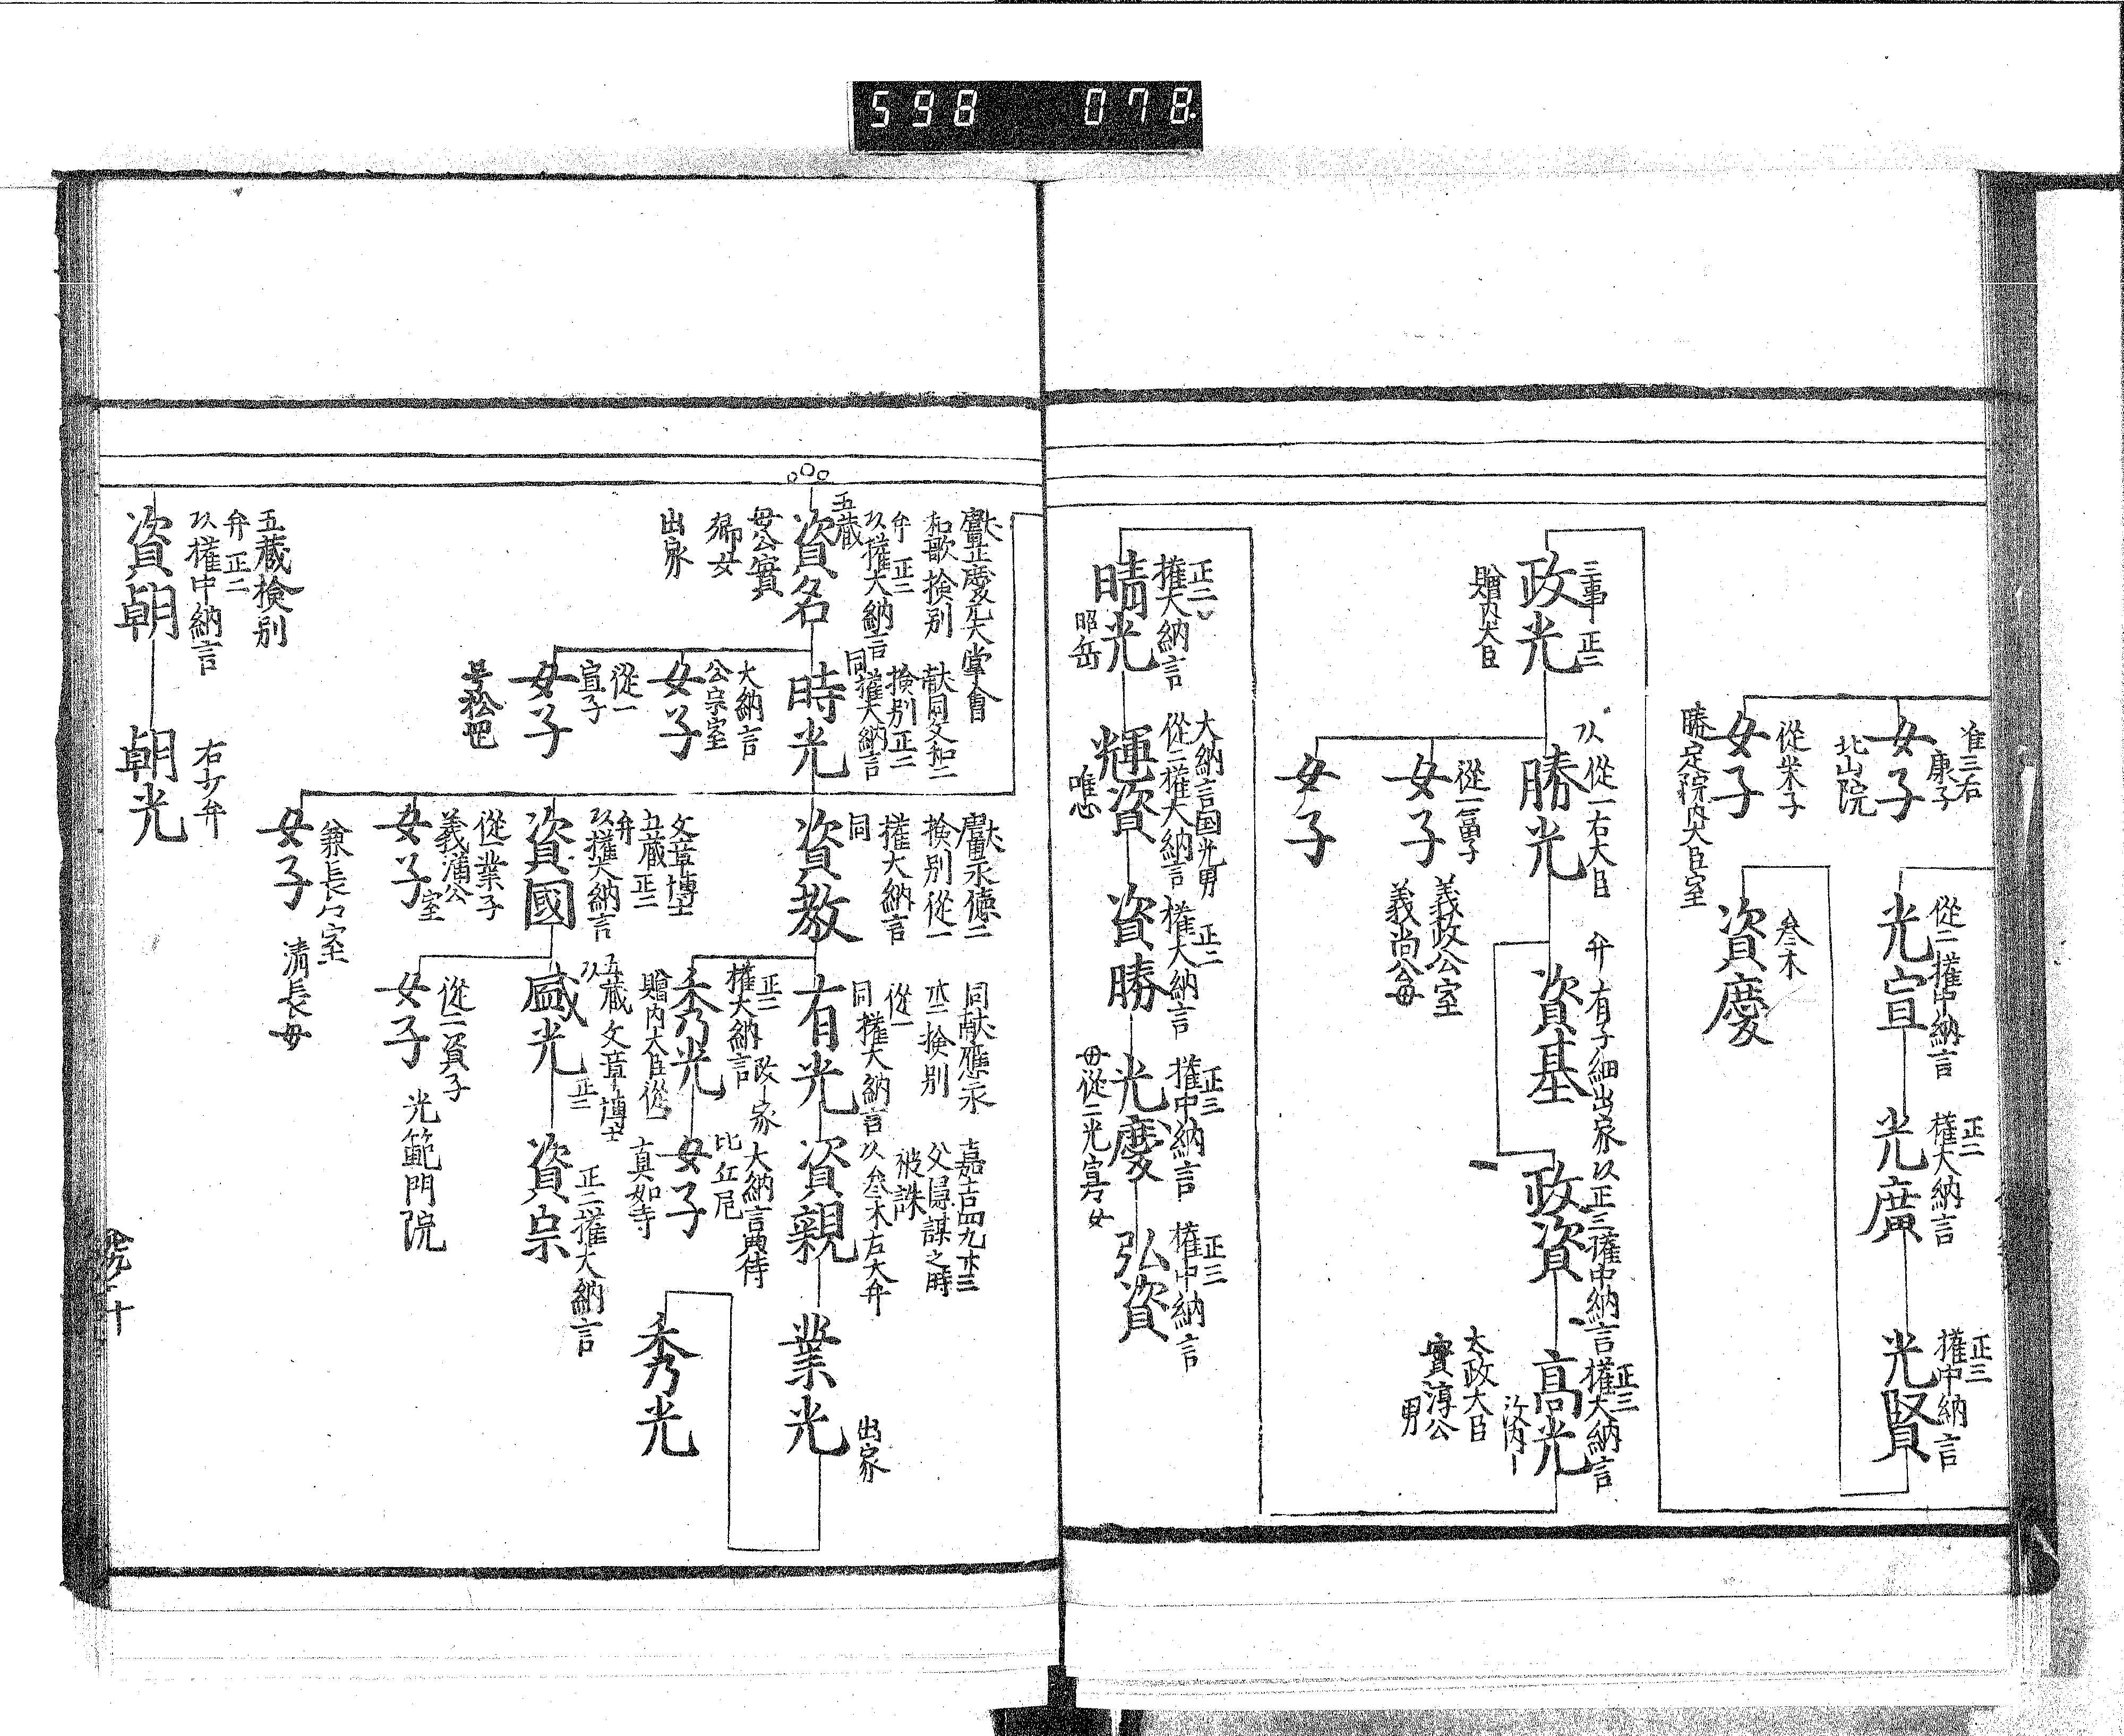 598 078
准三后
康子
女子
北山院
從二栄子
女子
勝定院内大臣室
從二權中納言
光宣
正二
權大納言
光廣
正三
權中納言
光賢
叁木
資慶
三事 正二
政光
贈内大臣
從一右大臣
勝光
從一富子
女子
義政公室
義尚公母
女子
弁 有子細出家
資基
正三權中納言
政資
正三
權大納言
高光
改内
太政大臣
實淳公
男
正二
權大納言
晴光
昭岳
大納言国光男
從二權大納言
輝資
唯心
正二
權大納言
資勝
正三
權中納言
光慶
母從二光寛女
正三
權中納言
弘資
獻盧正慶元大掌會
和歌 檢別
弁 正二
以權大納言
五蔵
資名
母公實
卿女
出家
獻同文和二
檢別正二
同權大納言
時光
大納言
公宗室
女子
從一
宣子
女子
号松吧
獻盧永德二
檢別從一
權大納言
同
資教
同獻應永
檢別
從一
同權大納言
有光
嘉吉四九廿三
父隠謀之時
被誅
以叁木左大弁
資親
出家
業光
秀光
正二
權大納言
改家
秀光
贈内大臣從一
大納言典侍
比丘尼
女子
真如寺
文章博士
五蔵正二
弁
以權大納言
資國
五蔵 文章博士
正二
盛光
正二權大納言
資宗
從二資子
女子
光範門院
從一業子
義蒲公
室
女子
兼長々室
女子
清長母
五蔵檢別
弁 正二
以權中納言
資朝
右少弁
朝光